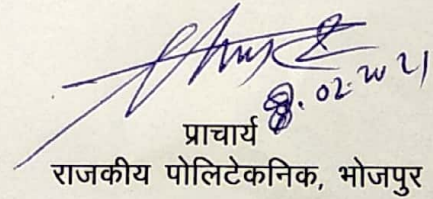 8.02.2021
प्राचार्य
राजकीय पोलिटेकनिक, भोजपुर